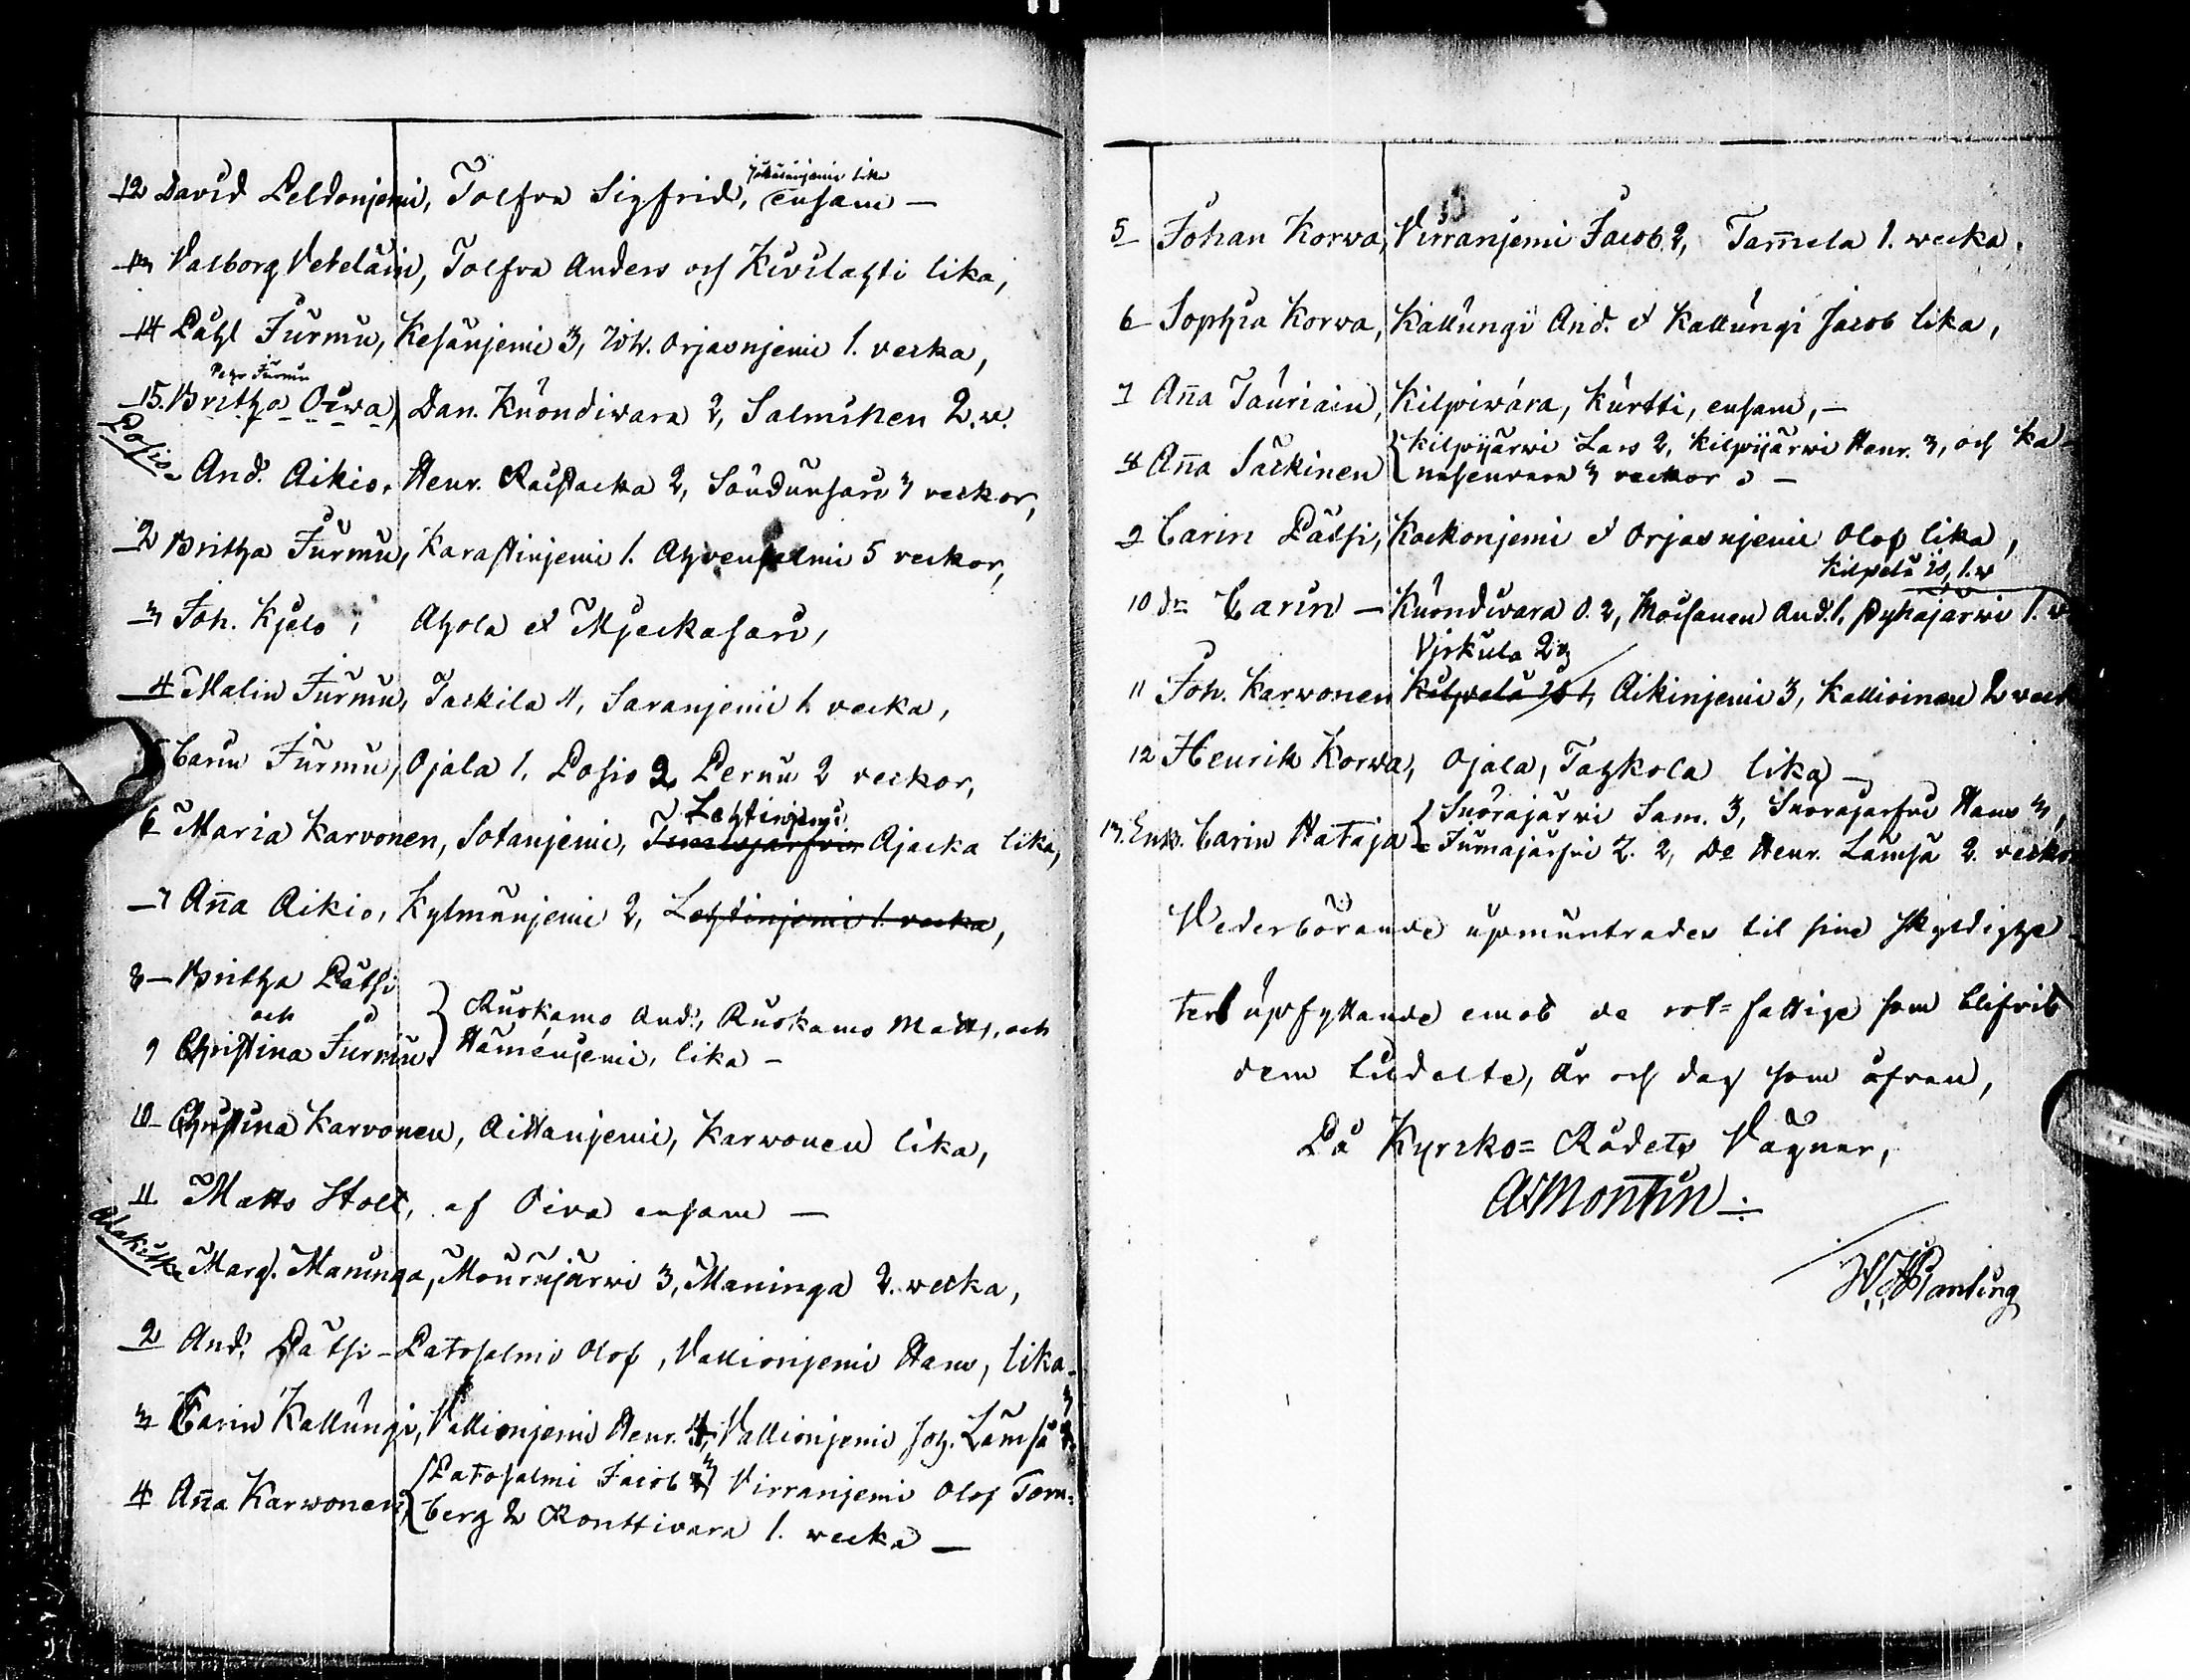 12 David Peldonjemi, Tolfva Sigfrid, ensam —
13 Valborg Veteläin, Tolfva Anders och Kivilahti lika,
14 Påhl Jurmu, Kesänjemi 3, Joh. Orjasnjemi 1. vecka,
Pehr Jurmu
15. Britha Oiwa, Dan. Kuondivara 2, Salminen 2. w.
Posio
And. Aikio, Henr. Raistacka 2, Söudunsari 3 veckor,
2 Britha Jurmu, Karastinjemi 1. Ahvensalmi 5 veckor,
3 Joh. Kjelo, Ahola et Mjeckasari,
4 Malin Jurmu, Jackila 4, Saranjemi 1. vecka,
5 Carin Jurmu, Ojala 1, Posio 2 Pernu 2 veckor,
Lehtinjemi
6 Maria Karvonen, Sotanjemi, Ajacka lika,
7 Anna Aikio, Kylmänjemi 2, Lehtinjemi 1. vecka,
8 — Britha Pätsi
och
9 Christina Jurmu } Ruokamo And., Ruokamo Matts, och
Haménjemi, lika —
10 Christina Karvonen, Aittanjemi, Karwonen lika,
11 Matts Stolt, af Oiva ensam —
Alakitka
Marg. Maninga, Mourujärwi 3, Maninga 2. vecka,
2 And. Pätsi — Patosalmi Olof, Vallionjemi Hans, lika
3 Carin Kallungi, Vallionjemi Henr. 4, Vallionjemi Joh. Lämsä 3
4 Anna Karwonen { Patosalmi Jacob 3 Virranjemi Olof Torn=
berg 2 Ronttivara 1. vecka —
5 Johan Korwa, Virranjemi Jacob 2, Tam̄ela 1. vecka.
6 Sophia Korwa, Kallungi And. et Kallungi Jacob lika,
7 An̄a Tauriain, Kilpivára, Kurtti, ensam, —
8 An̄a Särkinen { Kilpijärwi Lars 2, Kilpijärwi Henr. 3, och Ka=
nasenvara 3 veckor —
9 Carin Pätsi, Kockonjemi et Orjasnjemi Olof lika,
Kilpelä Is, 1. w
10 d:o Carin — Kuondivara O. 2, Moisanen And. 1, Pyhajärwi 1. w
Virkula 2
11 Joh. Karwonen Kilpelä Is 1, Aikinjemi 3, Kallioinen 2 veck
12 Henrik Korwa, Ojala, Tahkola lika —
13. Enk. Carin Hataja { Suorajärvi Sam. 3, Suorajarfvi Hans 3,
Jumajärfvi Z. 2, De Henr. Lämsä 2. veckor
Wederbörande upmuntrades til sine skyldighe
ters upfyllande emot de rot=fattige som blifvit
dem tildelte, År och dag som ofvan,
På Kyrcko=Rådets Vägnar,
A: Montin
W. Planting